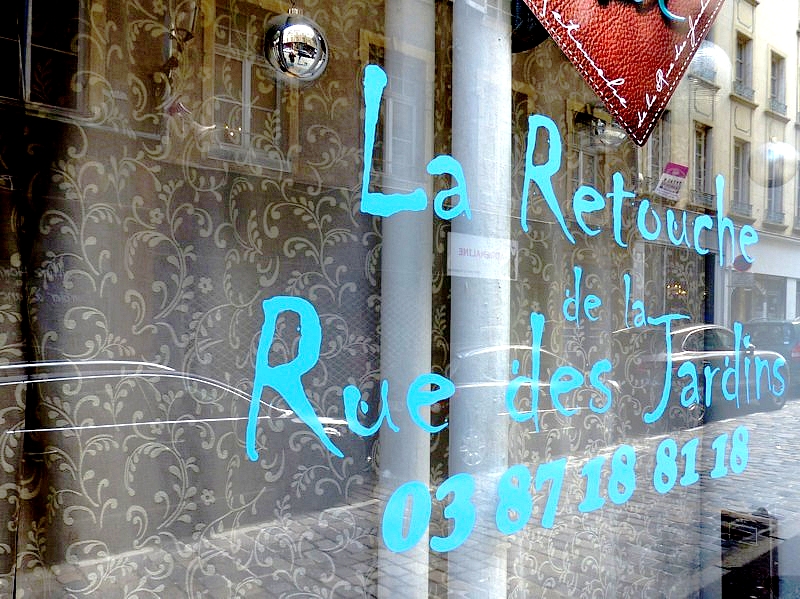 La Retouche
de la
Rue des Jardins
03 87 18 81 18